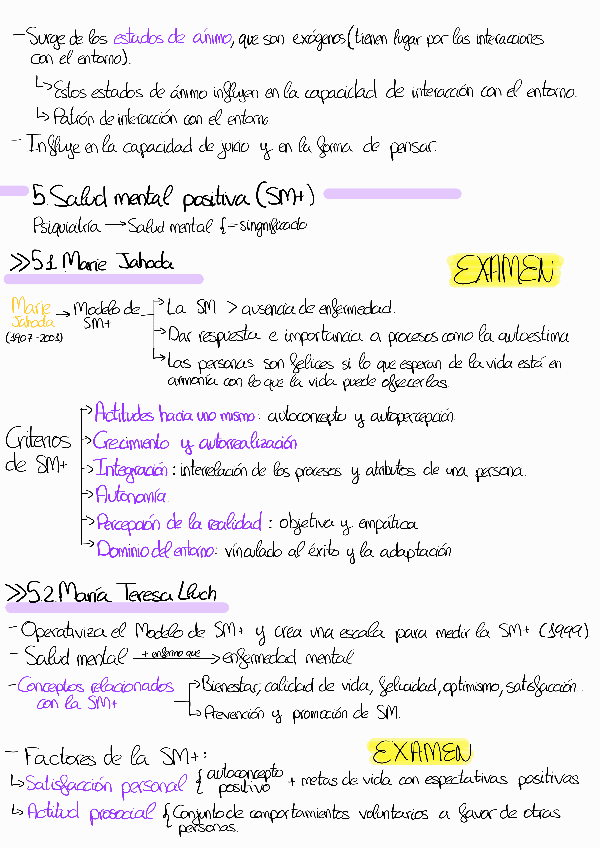 - Surge de los estados de ánimo, que son exógenos (tienen lugar por las interacciones
con el entorno).
↳ Estos estados de ánimo influyen en la capacidad de interacción con el entorno.
↳ Patrón de interacción con el entorno
- Influye en la capacidad de juicio y en la forma de pensar.
5. Salud mental positiva (SM+)
Psiquiatría → Salud mental {- singnificado
>> 5.1. Marie Jahoda
EXAMEN
Marie Jahoda (1907-2001) → Modelo de SM+
→ La SM > ausencia de enfermedad.
→ Dar respuesta e importancia a procesos como la autoestima
→ Las personas son felices si lo que esperan de la vida está en
armonía con lo que la vida puede ofrecerlas.
Criterios de SM+
→ Actitudes hacia uno mismo: autoconcepto y autopercepción.
→ Crecimiento y autorrealización
→ Integración: interrelación de los procesos y atributos de una persona.
→ Autonomía.
→ Percepción de la realidad: objetiva y empática
→ Dominio del entorno: vinculado al éxito y la adaptación
>> 5.2. María Teresa Lluch
- Operativiza el Modelo de SM+ y crea una escala para medir la SM+ (1999)
- Salud mental + enfermo que → enfermedad mental
- Conceptos relacionados con la SM+
→ Bienestar, calidad de vida, felicidad, optimismo, satisfacción.
→ Prevención y promoción de SM.
- Factores de la SM+:
EXAMEN
↳ Satisfacción personal { autoconcepto positivo + metas de vida con espectativas positivas
↳ Actitud prosocial { Conjunto de comportamientos voluntarios a favor de otras
personas.